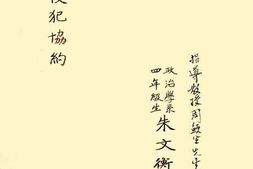 侵犯協約
指導教授周鯁生先生
政治學系
四年級生
朱文衡